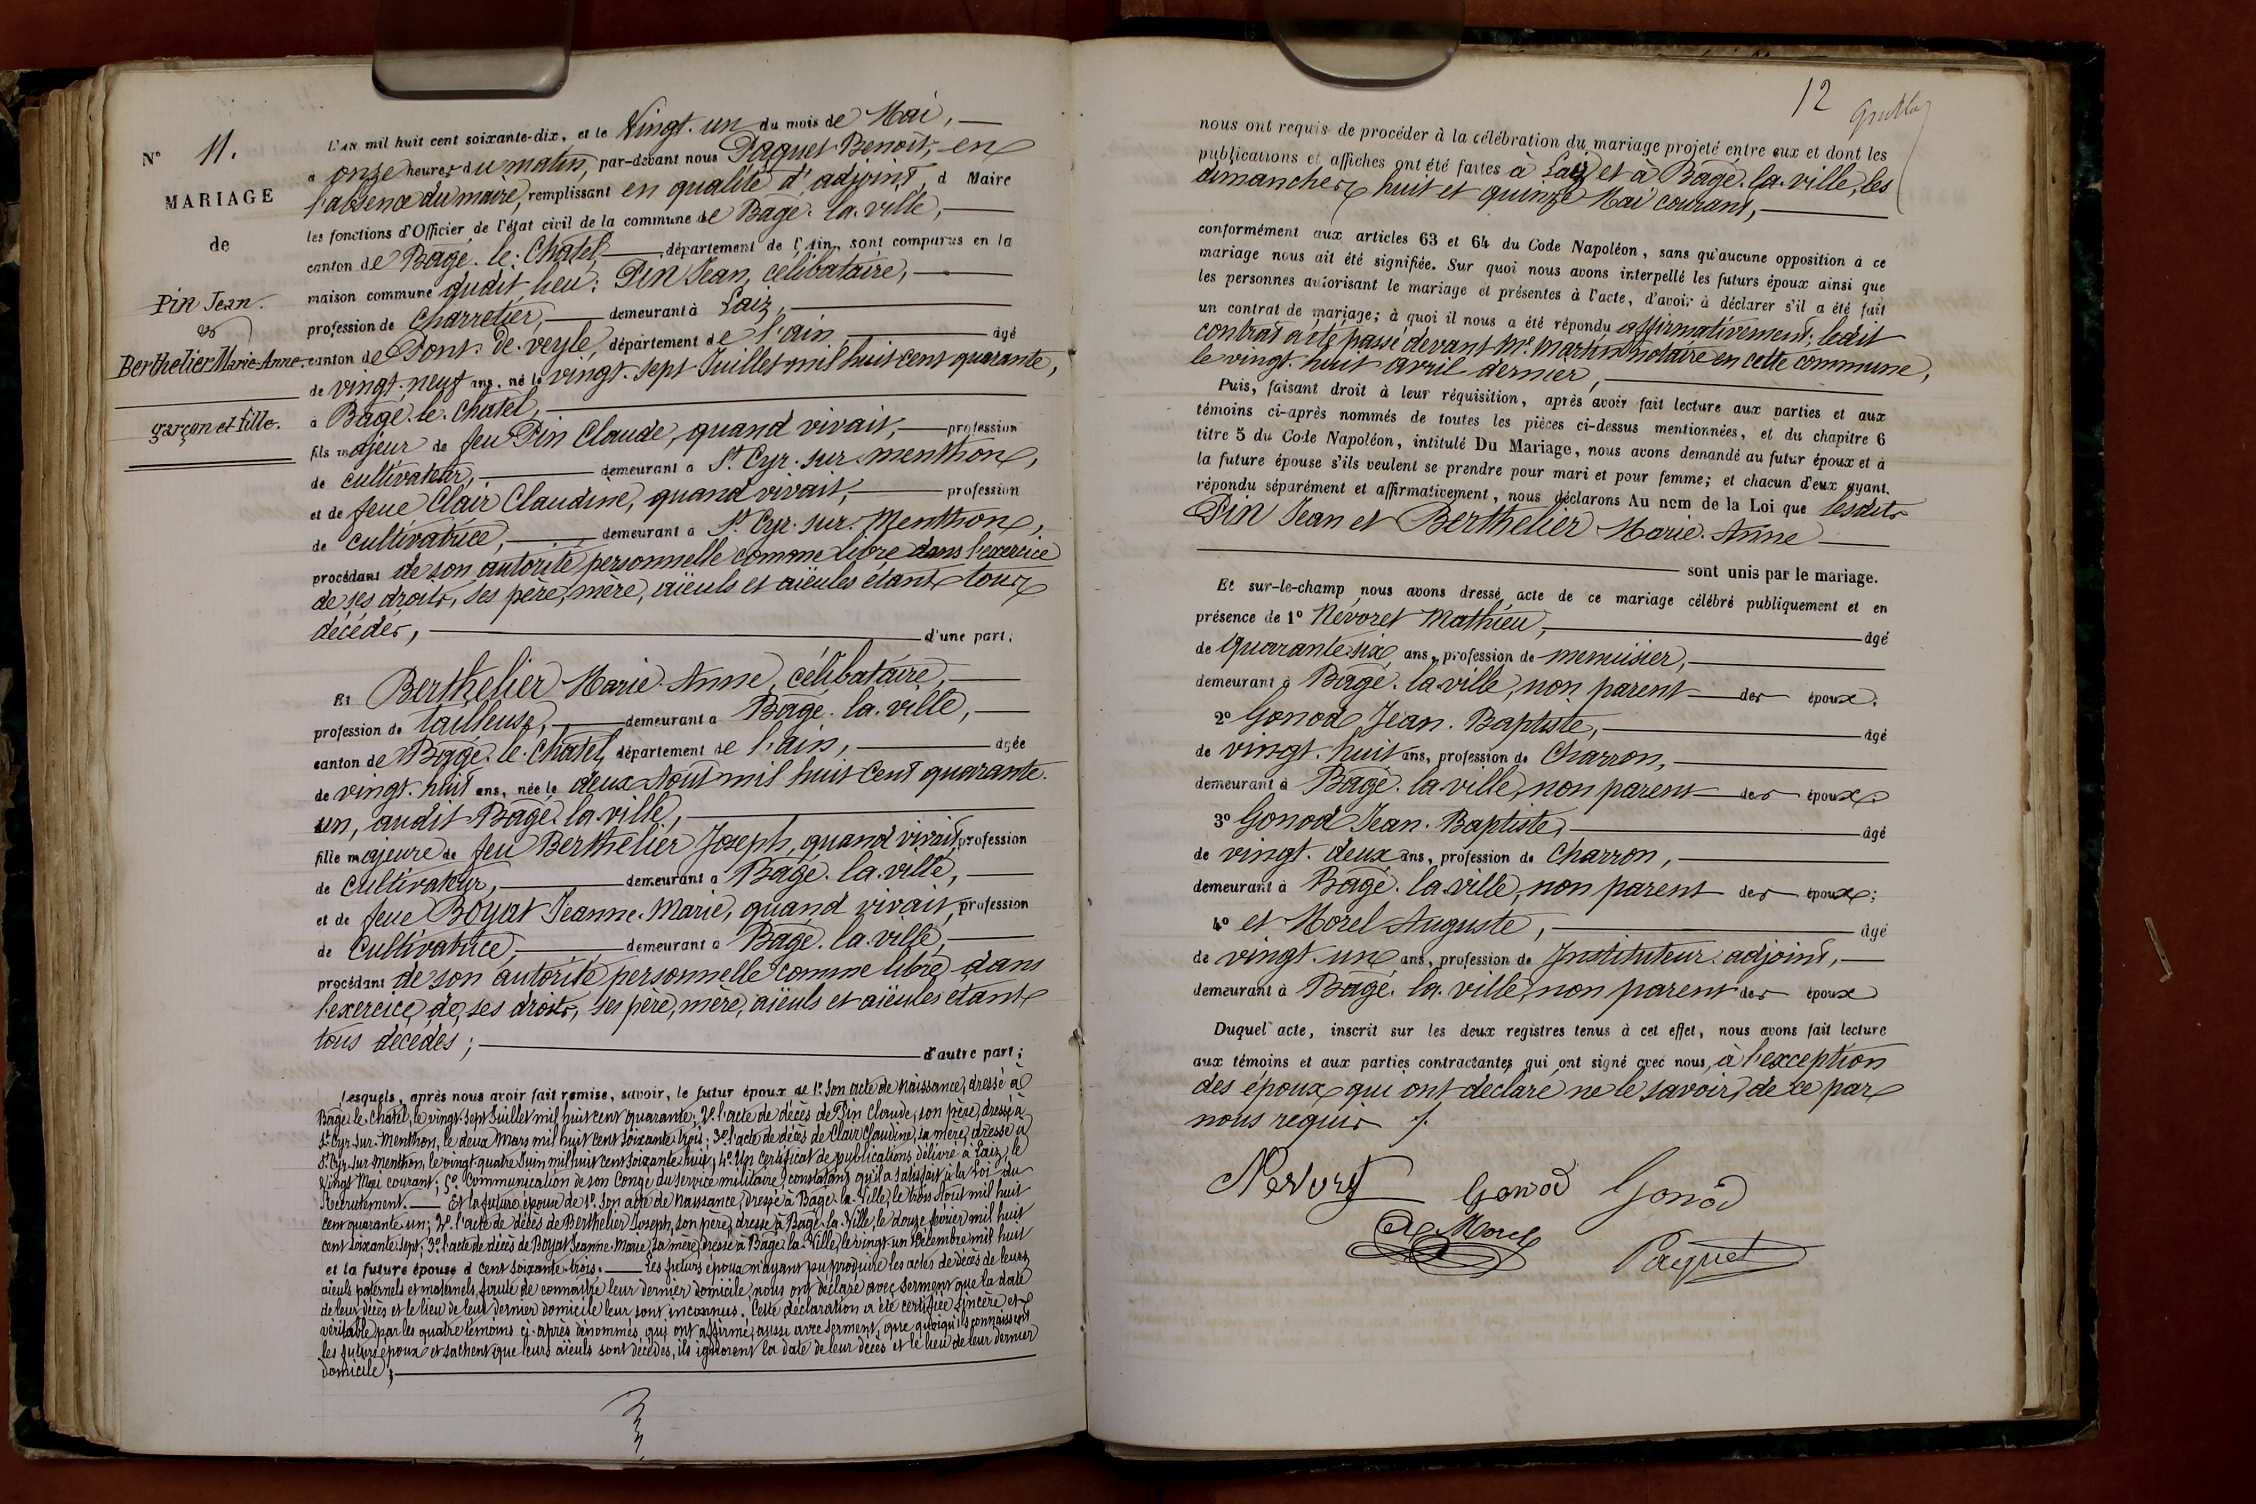 N° 11.
MARIAGE
de
Pin Jean.
&
Berthelier Marie-Anne.
garçon et fille.
L'AN mil huit cent soixante-dix, et le Vingt-un du mois de Mai,
à onze heures du matin, par-devant nous Paquet Benoit, en
l'absence du maire, remplissant en qualité d'adjoint, d Maire
les fonctions d'Officier de l'état civil de la commune de Bagé-la-ville,
canton de Bagé-le-Chatel, département de l'Ain, sont comparus en la
maison commune dudit lieu: Pin Jean, célibataire,
profession de Charretier, demeurant à Laiz,
canton de Pont-de-veyle, département de l'ain, âgé
de vingt-neuf ans, né le vingt-sept Juillet mil huit cent quarante,
à Bagé-le-Chatel,
fils majeur de feu Pin Claude, quand vivait, profession
de cultivateur, demeurant à St Cyr-sur-menthon,
et de feue Clair Claudine, quand vivait, profession
de cultivatrice, demeurant à St Cyr-sur-Menthon,
procédant de son autorité personnelle comme libre dans l'exercice
de ses droits, ses père, mère, aïeuls et aïeules étant tous
décédés, d'une part;
Et Berthelier Marie-Anne, célibataire,
profession de tailleuse, demeurant à Bagé-la-ville,
canton de Bagé-le-Chatel, département de l'ain, âgée
de vingt-huit ans, née le deux Aout mil huit cent quarante-
un, audit Bagé-la-ville,
fille majeure de feu Berthelier Joseph, quand vivait, profession
de cultivateur, demeurant à Bagé-la-ville,
et de feue Boyat Jeanne-Marie, quand vivait, profession
de Cultivatrice, demeurant à Bagé-la-ville,
procédant de son autorité personnelle comme libre dans
l'exercice de ses droits, ses père, mère, aïeuls et aïeules étant
tous décédés; d'autre part;
Lesquels, après nous avoir fait remise, savoir, le futur époux de 1°. Son acte de Naissance, dressé à
Bagé-le-Chatel, le vingt-sept Juillet mil huit cent quarante; 2°. l'acte de décès de Pin Claude, son père, dressé à
St Cyr-sur-Menthon, le deux Mars mil huit cent soixante-trois; 3°. l'acte de décès de Clair Claudine, sa mère, dressé à
St Cyr-sur-Menthon, le vingt-quatre Juin mil huit cent soixante-huit; 4°. Un certificat de publications délivré à Laiz, le
Vingt Mai courant; 5°. Communication de son Congé du service militaire, constatant qu'il a satisfait à la Loi du
Recrutement. Et la future épouse de 1°. Son acte de Naissance, dressé à Bagé-la-Ville, le trois Aout mil huit
cent quarante-un; 2°. l'acte de décès de Berthelier Joseph, son père, dressé à Bagé-la-Ville, le douze février mil huit
cent soixante-sept; 3°. l'acte de décès de Boyat Jeanne-Marie, sa mère, dressé à Bagé-la-Ville, le vingt-un Décembre mil huit
et la future épouse d cent soixante-trois. Les futurs époux n'ayant pu produire les actes de décès de leurs
aïeuls paternels et maternels, faute de connaître leur dernier domicile, nous ont déclaré avec serment que la date
de leur décès et le lieu de leur dernier domicile leur sont inconnus. Cette déclaration a été certifiée sincère et
véritable par les quatre témoins ci-après dénommés, qui ont affirmé, aussi avec serment, que quoiqu'ils connaissent
les futurs époux et sachent que leurs aïeuls sont décédés, ils ignorent la date de leur décès et le lieu de leur dernier
domicile;
12
nous ont requis de procéder à la célébration du mariage projeté entre eux et dont les
publications et affiches ont été faites à Laiz et à Bagé-la-ville, les
dimanches huit et quinze Mai courant,
conformément aux articles 63 et 64 du Code Napoléon, sans qu'aucune opposition à ce
mariage nous ait été signifiée. Sur quoi nous avons interpellé les futurs époux ainsi que
les personnes autorisant le mariage et présentes à l'acte, d'avoir à déclarer s'il a été fait
un contrat de mariage; à quoi il nous a été répondu affirmativement; ledit
contrat a été passé devant Me. Martin notaire en cette commune,
le vingt-huit avril dernier,
Puis, faisant droit à leur réquisition, après avoir fait lecture aux parties et aux
témoins ci-après nommés de toutes les pièces ci-dessus mentionnées, et du chapitre 6
titre 5 du Code Napoléon, intitulé Du Mariage, nous avons demandé au futur époux et à
la future épouse s'ils veulent se prendre pour mari et pour femme; et chacun d'eux ayant
répondu séparément et affirmativement, nous déclarons Au nom de la Loi que lesdits
Pin Jean et Berthelier Marie-Anne
sont unis par le mariage.
Et sur-le-champ nous avons dressé acte de ce mariage célébré publiquement et en
présence de 1° Névoret Mathieu, âgé
de Quarante-six ans, profession de menuisier,
demeurant à Bagé-la-ville, non parent des époux;
2° Gonod Jean-Baptiste, âgé
de vingt-huit ans, profession de Charron,
demeurant à Bagé-la-ville, non parent des époux;
3° Gonod Jean-Baptiste, âgé
de vingt-deux ans, profession de Charron,
demeurant à Bagé-la-ville, non parent des époux;
4° et Morel Auguste, âgé
de vingt-un ans, profession de Instituteur-adjoint,
demeurant à Bagé-la-ville, non parent des époux
Duquel acte, inscrit sur les deux registres tenus à cet effet, nous avons fait lecture
aux témoins et aux parties contractantes qui ont signé avec nous, à l'exception
des époux qui ont déclaré ne le savoir, de ce par
nous requis ./.
Nevoret Gonod Gonod
Morel Paquet